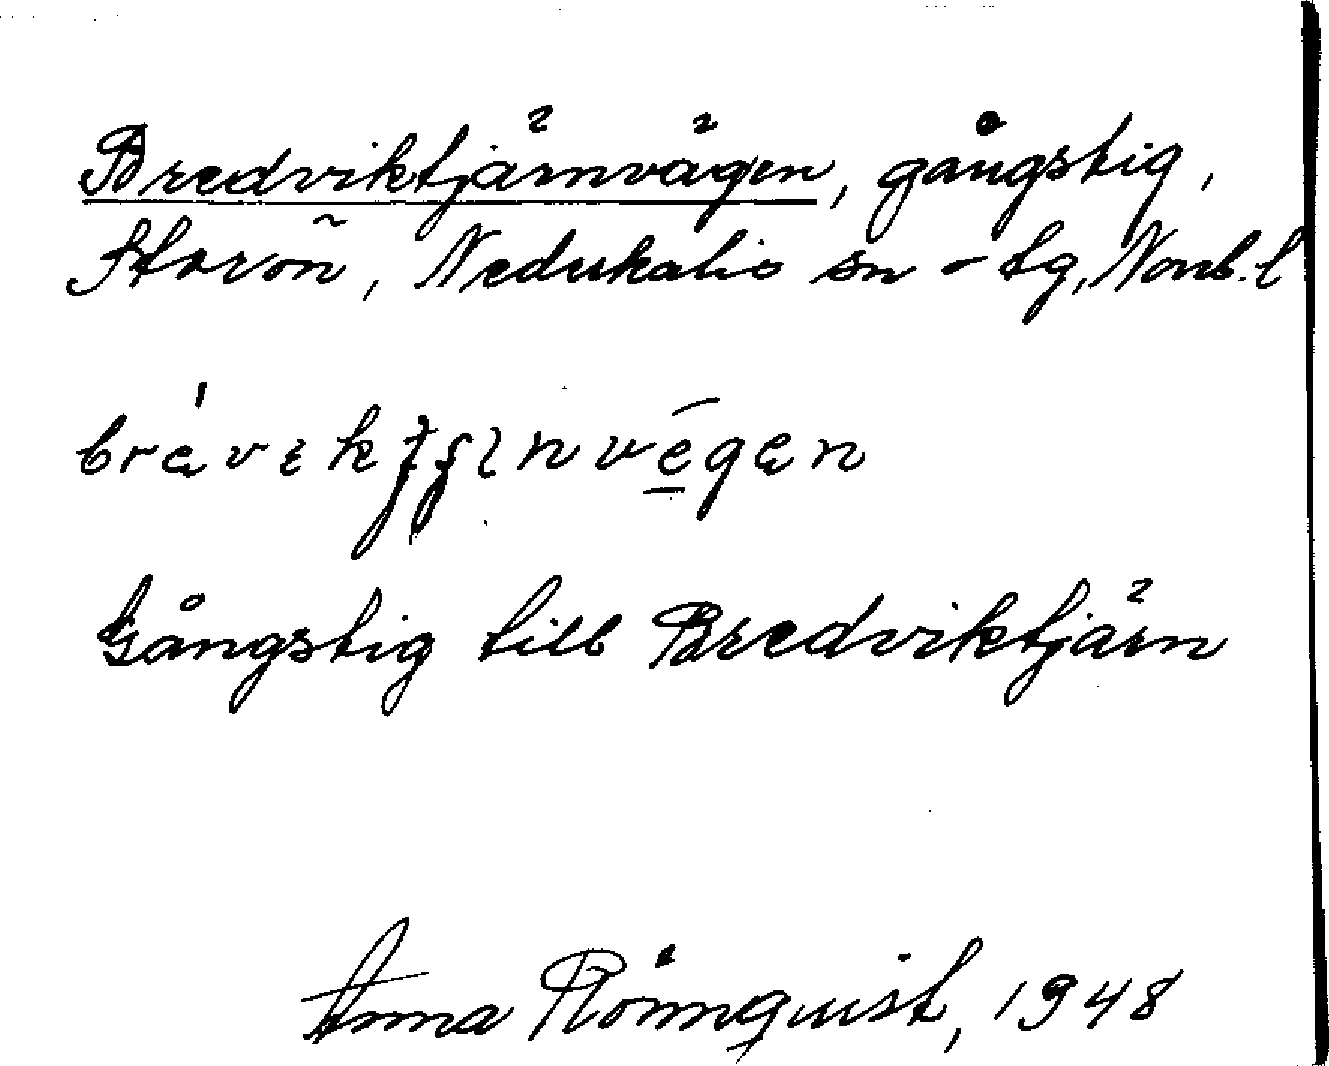 Bredviktjärnvägen, gångstig,
Storön, Nederkalix sn - tg, Norrb. l
Gångstig till Bredviktjärn
Anna Rönnquist, 1948